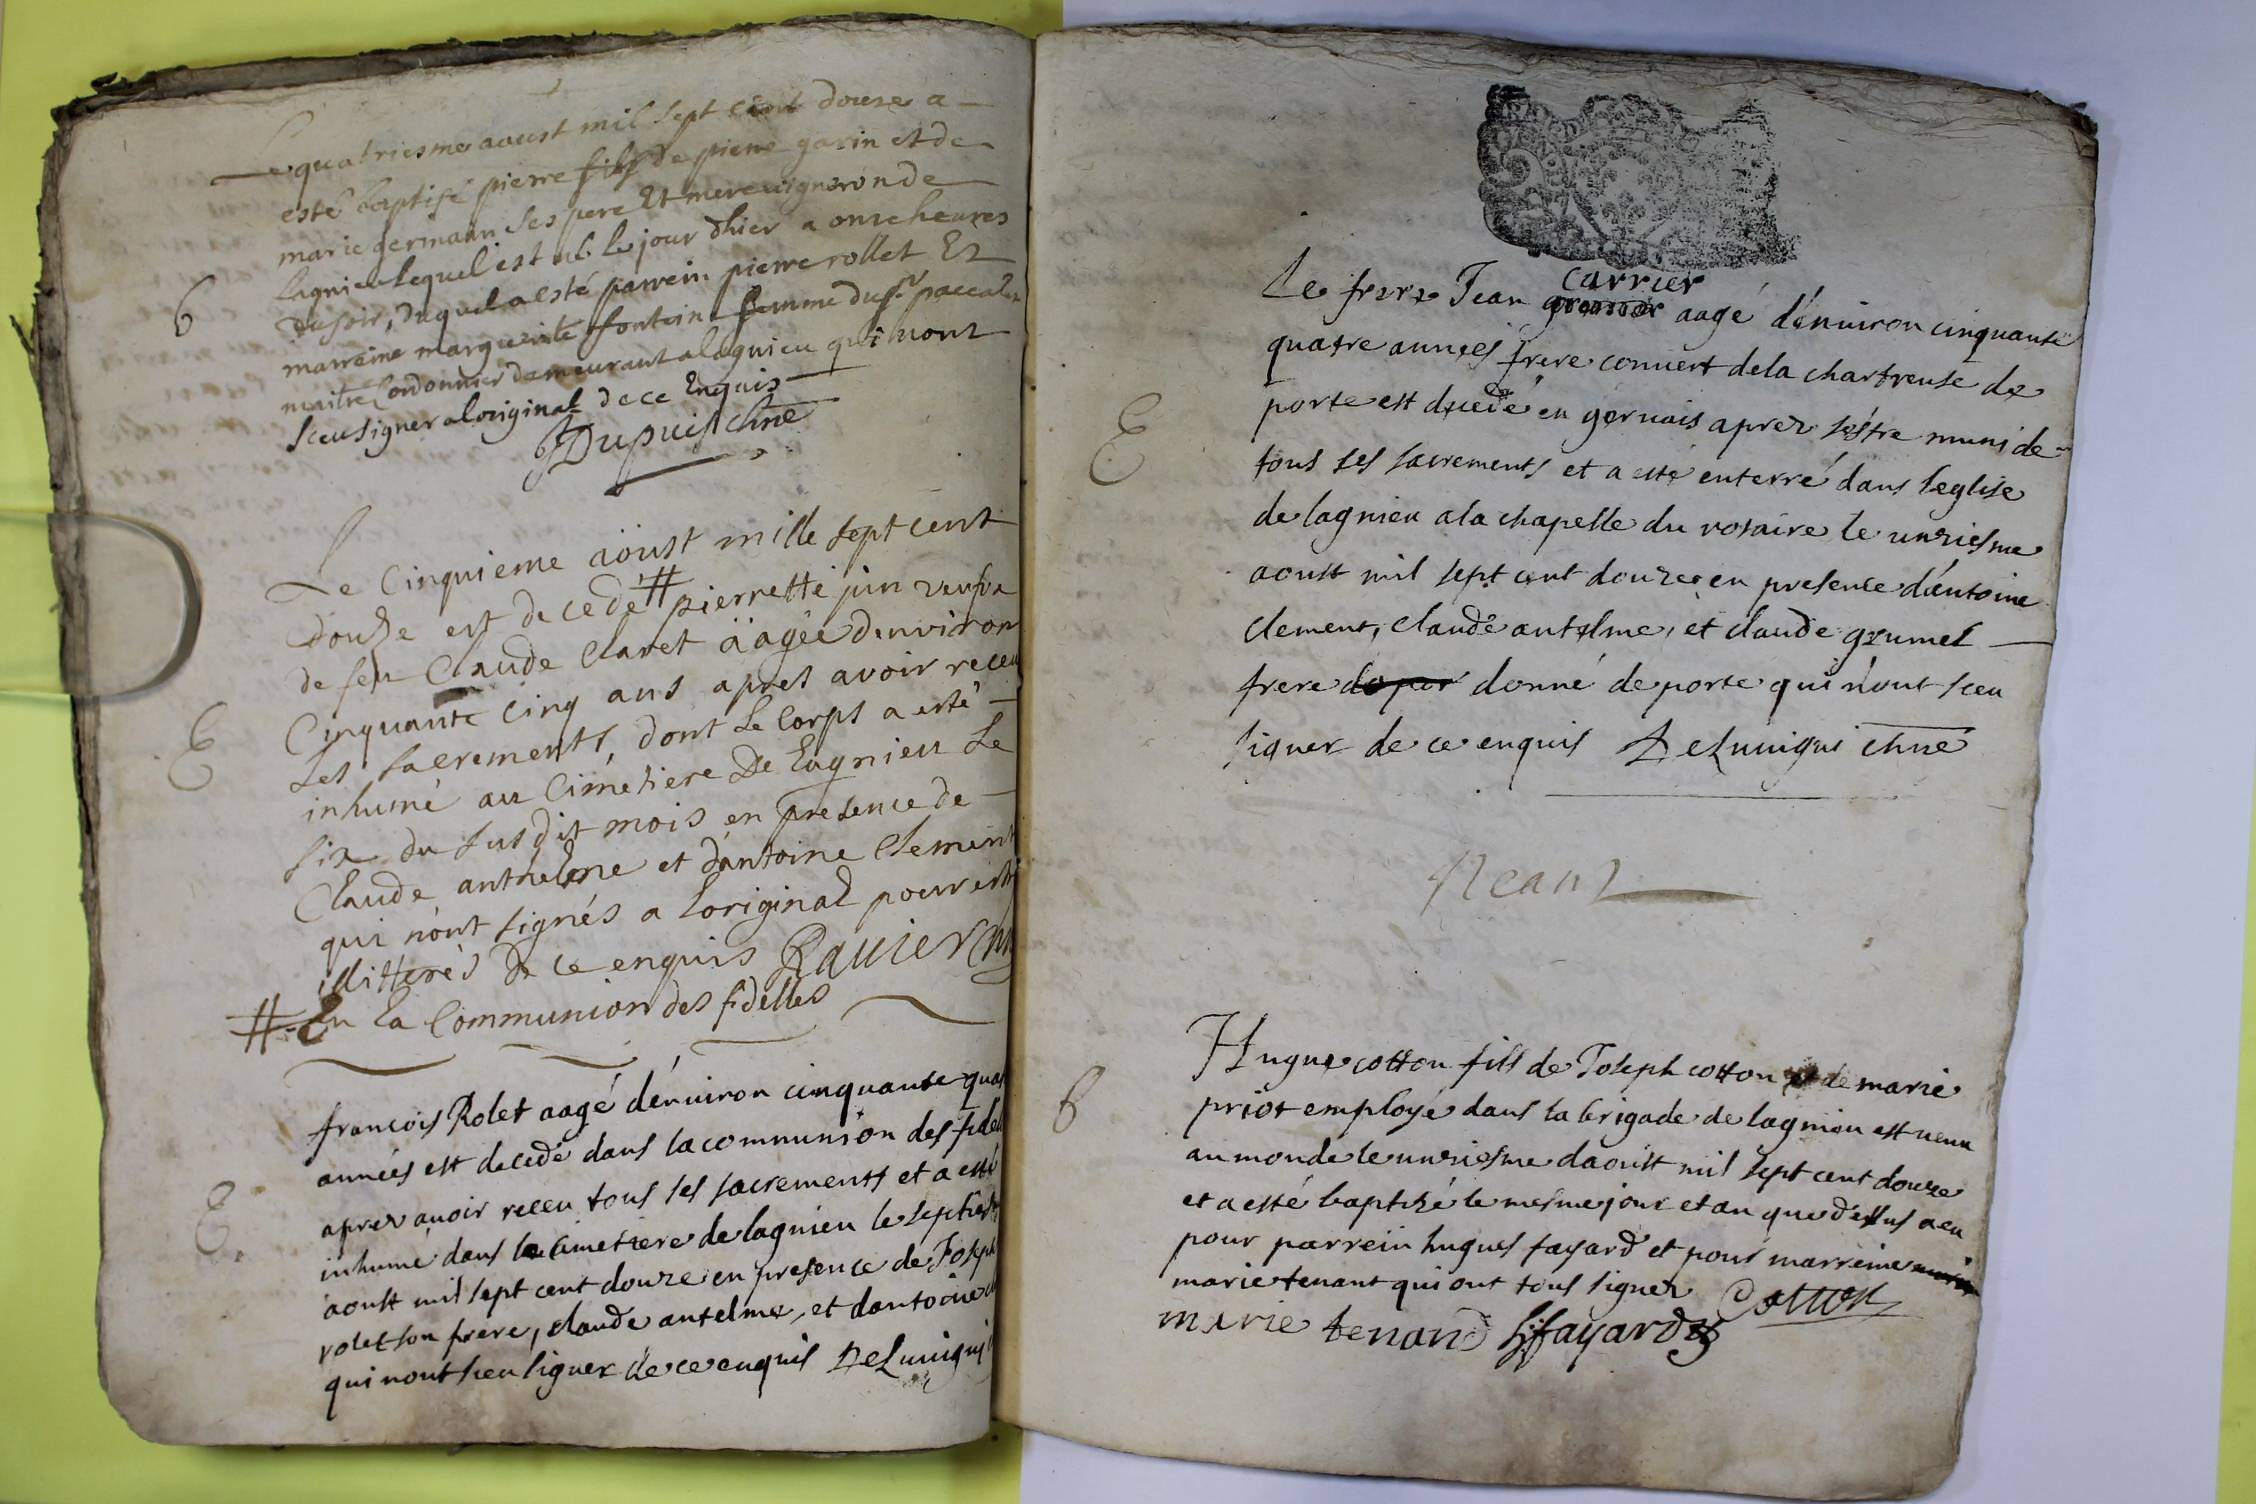 Le quatriesme aoust mil sept cent douze a
B
esté baptisé pierre fils de pierre garin et de
marie germain ses pere Et mere vigneron de
lagnieu lequel est né le jour dhier a onze heures
du soir, duquel a esté parrein pierre rollet Et
marreine marguerite fontein femme du sr
maitre Cordonnier demeurant a lagnieu qui nont
sceu signer a loriginal de ce Enquis
Dupuis chne
Le Cinquieme aoust mille sept cent
E
douze est decedé # pierrette jun veufve
de feu Claude Claret aagée denviron
Cinquante cinq ans apres avoir receu
Les sacrements, dont Le Corps a esté
inhumé au Cimetiere De Lagnieu Le
six du susdit mois en presence de
Claude anthelme et d'antoine Clement
qui n'ont signés a Loriginal pour estre
illitterés De ce enquis Ravier
# En La Communion des fidelles
francois Rolet aagé dénuiron cinquante quat
E.
années est decedé dans la communion des fidel
aprez auoir receu tous ses sacrements et a esté
inhumé dans le cimetiere de lagnieu le septies
aoust mil sept cent douze en presence de Joseph
rolet son frere, claude antelme, et dantoine
qui nont sceu signer de ce enquis DeLuuigni
carrier
Le frere Jean aagé dénuiron cinquante
quatre années frere conuert de la chartreuse de
E
porte est decedé en geruais aprez sestre muni de
tous ses sacrements et a esté enterré dans leglise
de lagnieu a la chapelle du rosaire le unziesme
aoust mil sept cent douze en presence dantoine
Clement, claude antelme, et claude grumel
frere de por donné de porte qui n'ont sceu
signer de ce enquis DeLuuigni chne
Neant
Hugue cotton fils de Joseph cotton et de marie
B
priot employé dans la brigade de lagnieu est uenu
au monde le unziesme daoust mil sept cent douze
et a esté baptizé le mesme jour et an que dessus a eu
pour parrein hugues fayard et pour marreine
marie tenant qui ont tous signez Cotton
marie tenand h fayard